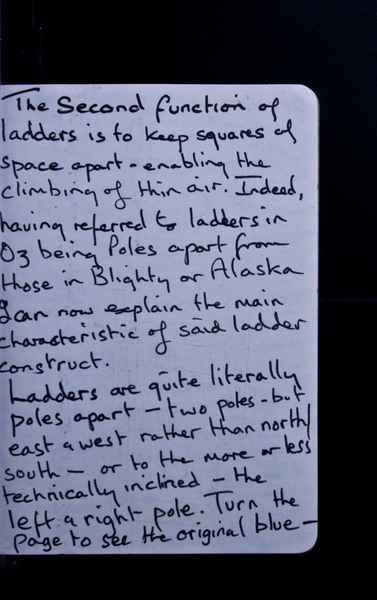 The Second function of
ladders is to keep squares of
space apart - enabling the
climbing of thin air. Indeed,
having referred to ladders in
Oz being Poles apart from
those in Blighty or Alaska
I can now explain the main
characteristic of said ladder
construct.
Ladders are quite literally
poles apart - two poles - but
east & west rather than north/
south - or to the more or less
technically inclined - the
left & right pole. Turn the
page to see the original blue-